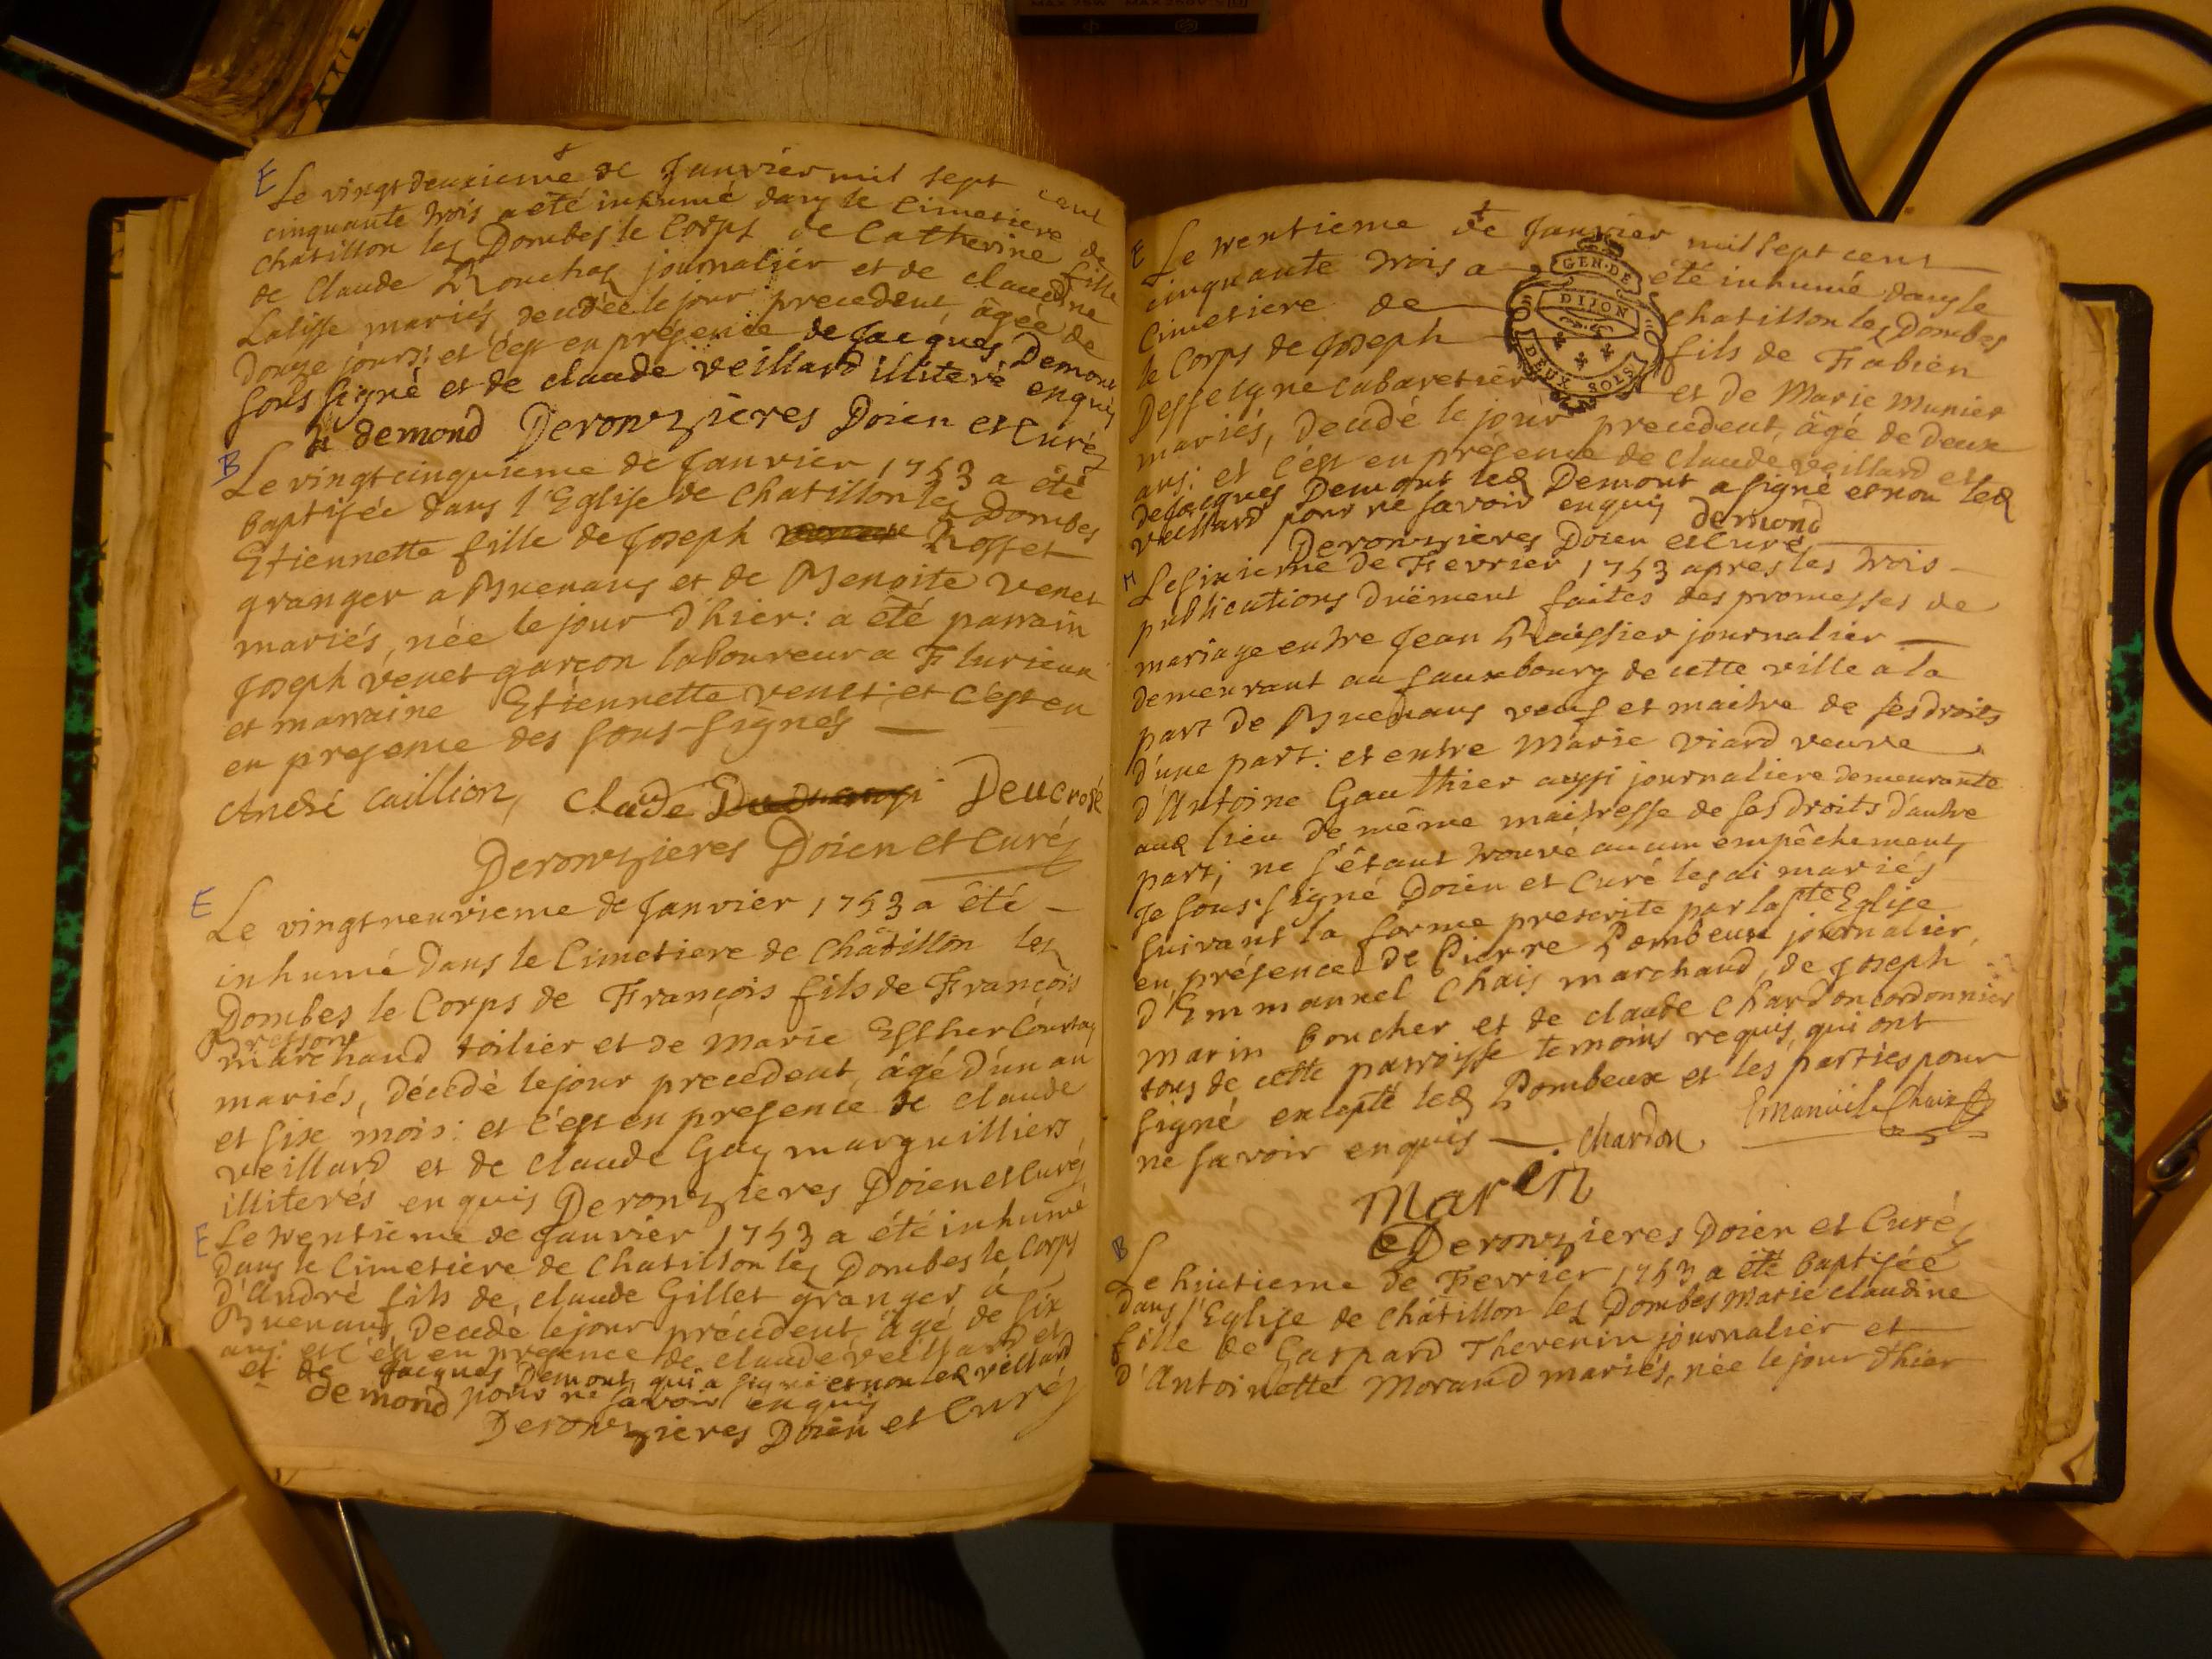 E Le vingt deuxieme de Janvier mil sept cent
cinquante trois a eté inhumé dans le Cimetiere de
chatillon les Dombes le Corps de Catherine fille
de Claude Rouchas journalier et de claudine
Lalisse mariés, decédée le jour precedent, âgée de
Douze jours: et c'est en présence de Jacques Demont
sous signé et de claude veillard illiteré enquis
demond Deronzieres Doien et Curé
B Le vingt cinquieme de Janvier 1753 a été
baptisée dans l'Eglise de Chatillon les Dombes
Etiennette fille de Joseph Rosset
granger a Buenans et de Benoite Venet
mariés, née le jour d'hier: a été parrain
Joseph venet garçon laboureur a Flurieux
et marraine Etiennette venet: et c'est en
en presence des sous-signés
André Caillion, Claude Deucrosé
Deronzieres Doien et Curé
E Le vingt neuvieme de Janvier 1753 a été
inhumé dans le Cimetiere de Châtillon les
Dombes le Corps de François fils de François
marchand toilier et de Marie Esther
mariés, décédé le jour precedent, âgé d'un an
et six mois: et c'est en presence de claude
veillard et de claude Goy marguilliers
illiterés enquis Deronzieres Doien et Curé
E Le trentieme de Janvier 1753 a été inhumé
dans le Cimetiere de Chatillon les Dombes le Corps
d'André fils de claude Gillet granger à
Buenans, decédé le jour précédent, âgé de six
ans: et c'est en presence de claude veillard et
et de Jacques Demont qui a signé et non led veillard
demond pour ne savoir enquis
Deronzieres Doien et Curé
E Le trentieme de Janvier mil sept cent
cinquante trois a été inhumé dans le
GEN. DE
DIJON
DEUX SOLS
Cimetiere de chatillon les Dombes
le Corps de Joseph fils de Fabien
Desseigne cabaretier et de Marie Munier
mariés, decédé le jour precedent, âgé de deux
ans: et c'est en présence de claude veillard et
de Jacques Demont led Demont a signé et non led
veillard pour ne savoir enquis demond
Deronzieres Doien et Curé
M Le sixieme de Fevrier 1753 apres les trois
publications düement faites des promesses de
mariage entre Jean journalier
demeurant au fauxbourg de cette ville a la
part de Buenans veuf et maitre de ses droits
d'une part: et entre Marie Viard veuve
d'Antoine Gauthier aussi journaliere demeurante
aud lieu de même maitresse de ses droits d'autre
part; ne s'étant trouvé aucun empêchement,
Je sous-signé Doien et Curé les ai mariés
suivant la forme prescrite par la ste Eglise
en présence de Pierre Pombeux journalier,
d'Emmanuel Chais marchand, de Joseph
Marin boucher et de claude Chardon cordonnier
tous de cette parroisse temoins requis, qui ont
signé excepté led Pombeux et les parties pour
ne savoir enquis chardon Emanüel Chaix
Marin
Deronzieres Doien et Curé
B Le huitieme de Fevrier 1753 a été baptisée
dans l'Eglise de Châtillon les Dombes Marie claudine
fille de Gaspard Thevenin journalier et
d'Antoinette Morand mariés, née le jour d'hier